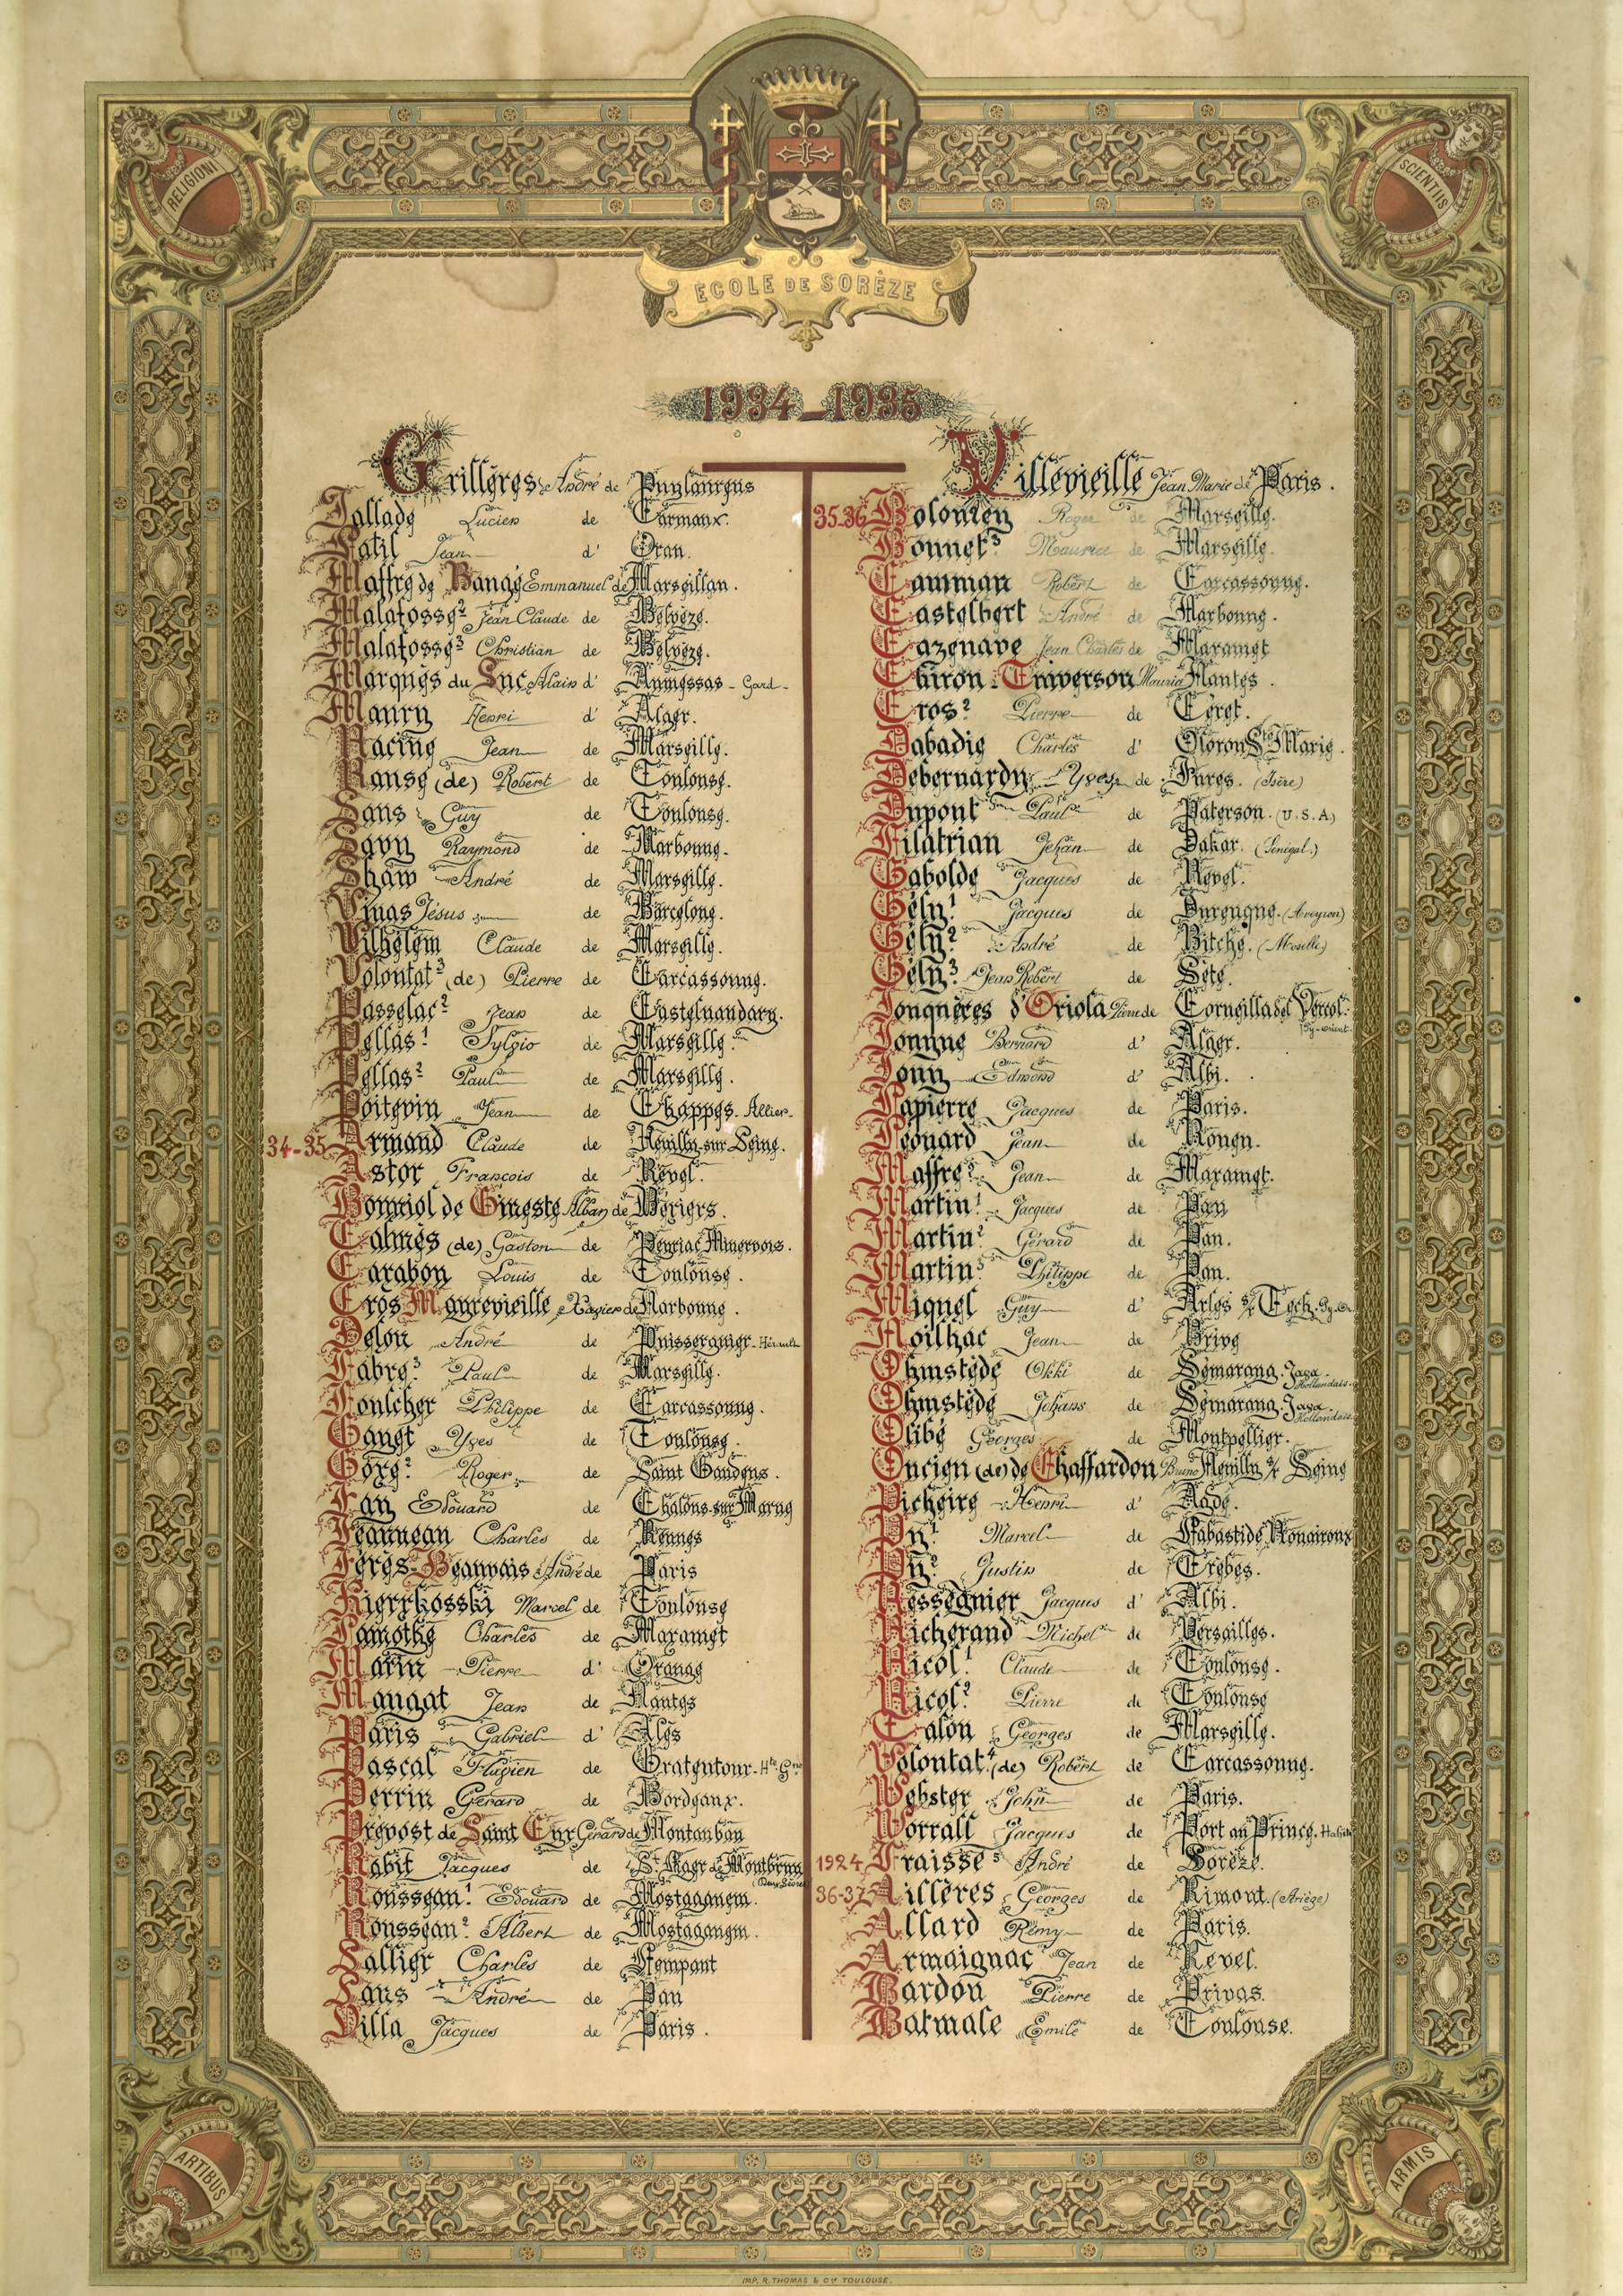 RELIGIONI
SCIENTIIS
ECOLE DE SORÈZE
1934_1935
Grillères André de Puylaurens
Jallade Lucien de Carmaux.
Jean d' Oran.
Maffre de Banes Emmanuel de Marseillan.
Malafosse² Jean Claude de Belvèze.
Malafosse³ Christian de Belvèze.
Marquès du Luc Alain d' Aumessas - Gard -
Maury Henri d' Alger.
Racine Jean de Marseille.
Ranse (de) Robert de Toulouse.
Sans Guy de Toulouse.
Savy Raymond de Narbonne.
Shaw André de Marseille.
Vinas Jésus de Barcelone.
Vilhelem Claude de Marseille.
Volontat³ (de) Pierre de Carcassonne.
Passelac² Jean de Castelnaudary.
Pellas¹ Sylvio de Marseille.
Pellas² Paul de Marseille.
Poitevin Jean de Chappes - Allier -
34-35 Armand Claude de Neuilly-sur-Seine.
Astor François de Revel.
Bonniol de Gineste Alban de Béziers.
Calmès (de) Gaston de Peyriac Minervois.
Carabon Louis de Toulouse.
Cros Mayrevieille Xavier de Narbonne.
Delon André de Puisserguier - Hérault
Fabre³ Paul de Marseille.
Foulcher Philippe de Carcassonne.
Ganet Yves de Toulouse.
Gorg² Roger de Saint Gaudens.
Edouard de Chalons-sur-Marne
Jeannean Charles de Rennes
Jérès-Beauvais André de Paris
Kierrkosski Marcel de Toulouse
Lamothe Charles de Mazamet
Marin Pierre d' Orange
Maugat Jean de Nantes
Paris Gabriel d' Alès
Pascal Flavien de Gratentour - Hte Gne
Perrin Gérard de Bordeaux.
Prévost de Saint Cyr Gérard de Montauban
Rabit Jacques de St Mayr de Montbrun (Deux Sèvres)
Rousseau¹ Edouard de Mostaganem.
Rousseau² Albert de Mostaganem.
Sallier Charles de Lempaut
Sans André de Pau
Villa Jacques de Paris.
Villevieille Jean Marie de Paris.
35-36 Bolonien Roger de Marseille.
Bonnet³ Maurice de Marseille.
Camman Robert de Carcassonne.
Castelbert André de Narbonne.
Cazenave Jean Charles de Mazamet
Chiron-Traverson Maurice Nantes.
Cros² Pierre de Céret.
Dabadie Charles d' Oloron Ste Marie.
Debernardy Yves de Fures. (Isère)
Dupont Paul de Paterson. (U.S.A.)
Filatrian Jehan de Dakar. (Sénégal.)
Gabolde Jacques de Revel.
Gély¹ Jacques de Durenque. (Aveyron)
Gély² André de Bitche. (Moselle)
Gély³ Jean Robert de Sète.
Jonquères d'Oriola Pierre de Corneilla del Vercol. Py-Orient.
Jouyne Bernard d' Alger.
Jouy Edmond d' Albi.
Lapierre Jacques de Paris.
Léonard Jean de Rouen.
Maffre² Jean de Mazamet.
Martin¹ Jacques de Pau
Martin² Gérard de Pau.
Martin³ Philippe de Pau.
Miquel Guy d' Arles s/ Tech. Py. Or.
Noilhac Jean de Brive
Ohmstede Okki de Semarang. Java Hollandais.
Ohmstede Johans de Semarang. Java Hollandais.
Olibé Georges de Montpellier.
Oncieu (de) de Chaffardon Bruno Neuilly s/ Seine
Picheire Henri d' Agde.
Py¹ Marcel de Labastide Rouairoux
Py² Justin de Trèbes.
Rességuier Jacques d' Albi.
Richerand Michel de Versailles.
Ricol¹ Claude de Toulouse.
Ricol² Pierre de Toulouse
Talon Georges de Marseille.
Volontat⁴ (de) Robert de Carcassonne.
Webster John de Paris.
Worrall Jacques de Port au Prince. Haïti
1924 Fraisse⁵ André de Sorèze.
36-37 Aillères Georges de Rimont. (Ariège)
Allard Rémy de Paris.
Armaignac Jean de Revel.
Bardon Pierre de Privas.
Batmale Emile de Toulouse.
ARTIBUS
ARMIS
IMP. R. THOMAS & Cie TOULOUSE.